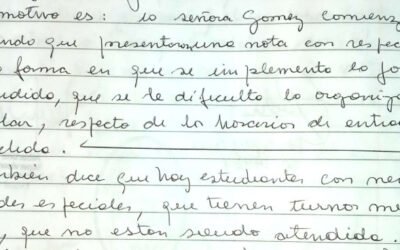 motivo es: la señora Gomez comienz
ndo que presentaron una nota con respec
forma en que se implemento la jo
ndida, que se le dificulta la organiza
lar, respecto de los horarios de entra
lida.
mbién dice que hay estudiantes con nec
des especiales, que tienen turnos me
, que no están siendo atendida.